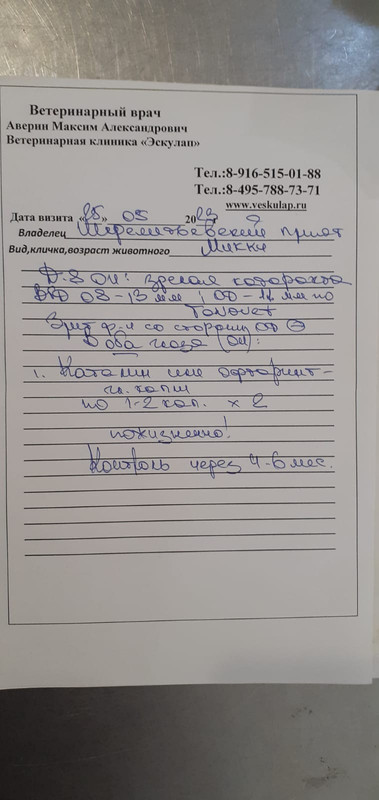 Ветеринарный врач
Аверин Максим Александрович
Ветеринарная клиника «Эскулап»
Тел.:8-916-515-01-88
Тел.:8-495-788-73-71
www.veskulap.ru
Дата визита «25» 05 2023
Владелец Шереметьевский приют
Вид,кличка,возраст животного Микки
Д-з OU: зрелая катаракта
ВГД OS-13 мм; OD-14 мм по
Tonovet
Зрит. ф-я со стороны OD
В оба глаза (OU):
1. Каталин или Офторинт-
гл. капли
по 1-2 кап. x 2
пожизненно!
Контроль через 4-6 мес.